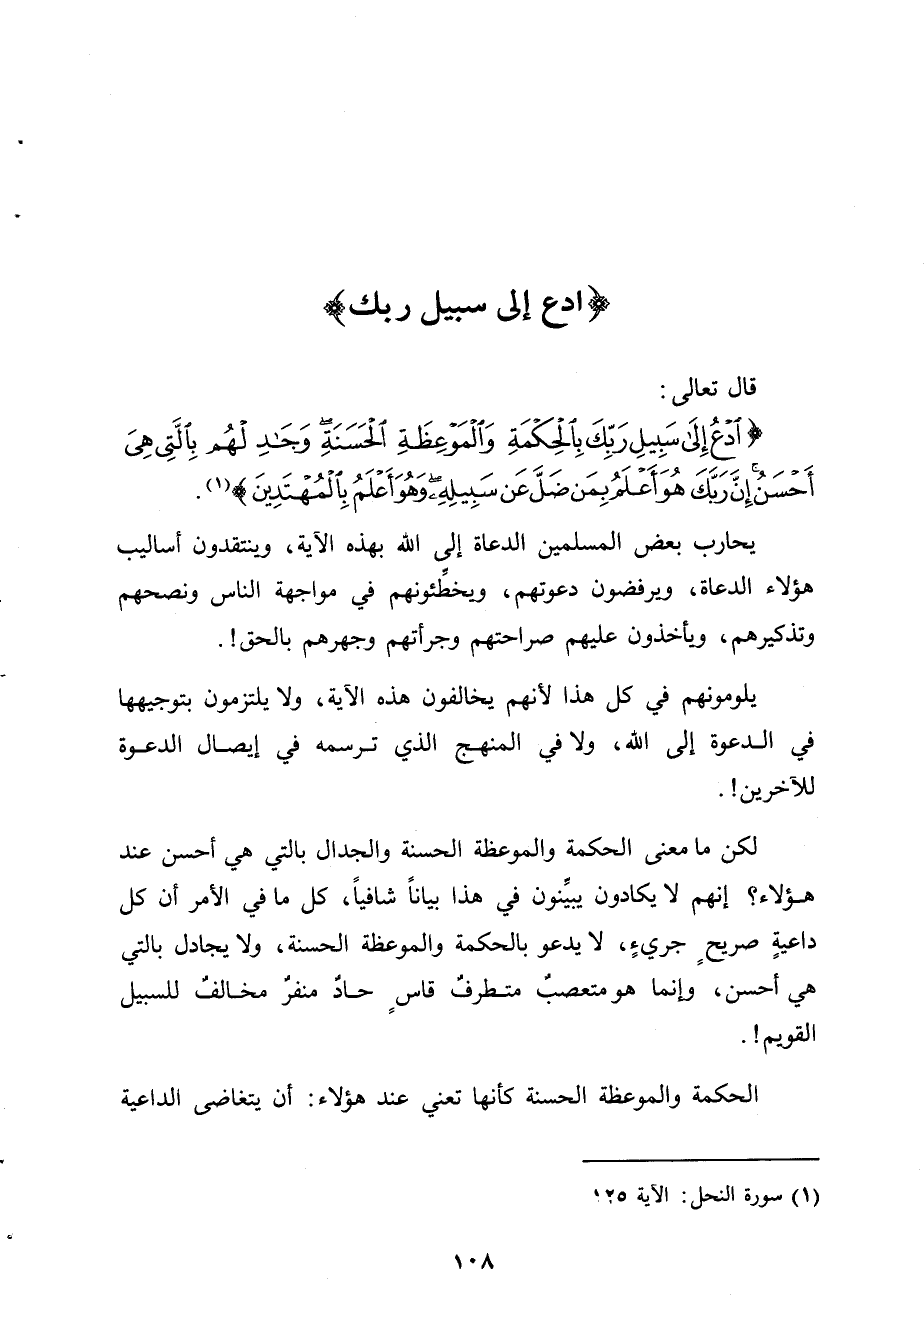 ﴿ادع إلى سبيل ربك﴾
قال تعالى:
﴿ٱدْعُ إِلَىٰ سَبِيلِ رَبِّكَ بِٱلْحِكْمَةِ وَٱلْمَوْعِظَةِ ٱلْحَسَنَةِۖ وَجَٰدِلْهُم بِٱلَّتِى هِىَ
أَحْسَنُۚ إِنَّ رَبَّكَ هُوَ أَعْلَمُ بِمَن ضَلَّ عَن سَبِيلِهِۦۖ وَهُوَ أَعْلَمُ بِٱلْمُهْتَدِينَ﴾(١).
يحارب بعض المسلمين الدعاة إلى الله بهذه الآية، وينتقدون أساليب
هؤلاء الدعاة، ويرفضون دعوتهم، ويخطِّئونهم في مواجهة الناس ونصحهم
وتذكيرهم، ويأخذون عليهم صراحتهم وجرأتهم وجهرهم بالحق!.
يلومونهم في كل هذا لأنهم يخالفون هذه الآية، ولا يلتزمون بتوجيهها
في الدعوة إلى الله، ولا في المنهج الذي ترسمه في إيصال الدعوة
للآخرين!.
لكن ما معنى الحكمة والموعظة الحسنة والجدال بالتي هي أحسن عند
هؤلاء؟ إنهم لا يكادون يبيِّنون في هذا بياناً شافياً، كل ما في الأمر أن كل
داعيةٍ صريحٍ جريءٍ، لا يدعو بالحكمة والموعظة الحسنة، ولا يجادل بالتي
هي أحسن، وإنما هو متعصبٌ متطرفٌ قاسٍ حادٌ منفرٌ مخالفٌ للسبيل
القويم!.
الحكمة والموعظة الحسنة كأنها تعني عند هؤلاء: أن يتغاضى الداعية
(١) سورة النحل: الآية ١٢٥
١٠٨